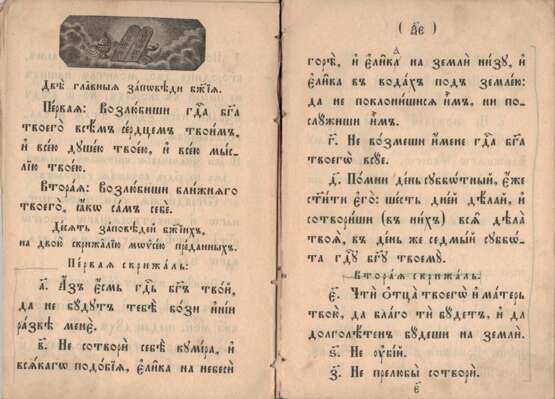 Двѣ̀ гла̑вныѧ за́повѣди бж҃їѧ.
Пе́рваѧ: Возлю́биши гдⷭ҇а бг҃а
твоего̀ всѣ́мъ се́рдцемъ твои́мъ,
и҆ все́ю душе́ю твое́ю, и҆ все́ю мы́с-
лїю твое́ю.
Втора́ѧ: Возлю́биши бли́жнѧго
твоего̀, ꙗ҆́кѡ са́мъ себѐ.
Де́сѧть за́повѣдей бж҃їихъ,
на двою̀ скрижа́лїю мѡѷсе́ю пре́данныхъ.
Пе́рваѧ скрижа́ль:
а҃. А҆́зъ є҆́смь гдⷭ҇ь бг҃ъ тво́й,
да не бу́дутъ тебѣ̀ бо́зи и҆ні́и
ра́звѣ менє̀.
в҃. Не сотворѝ себѣ̀ кꙋми́ра, и҆
всѧ́кагѡ подо́бїѧ, є҆ли̑ка на небесѝ
( а҃є )
горѣ̀, и҆ є҆ли̑ка на землѝ ни́зꙋ, и҆
є҆ли̑ка въ вода́хъ под̾ земле́ю:
да не поклони́шисѧ и҆̀мъ, ни по-
слꙋ́жиши и҆̀мъ.
г҃. Не во́змеши и҆́мене гдⷭ҇а бг҃а
твоегѡ̀ всꙋ́е.
д҃. По́мни де́нь сꙋббѡ́тный, є҆́же
ст҃и́ти є҆го̀: ше́сть дні́й дѣ́лай, и҆
сотвори́ши (въ ни́хъ) всѧ̑ дѣла̀
твоѧ̑, въ де́нь же седмы́й сꙋббѡ́-
та гдⷭ҇ꙋ бг҃ꙋ твоемꙋ̀.
Втора́ѧ скрижа́ль:
є҃. Чтѝ ѻ҆тца̀ твоего̀ и҆ ма́терь
твою̀, да бла́го тѝ бу́детъ, и҆ да
долголѣ́тенъ бу́деши на землѝ.
ѕ҃. Не ᲂу҆бі́й.
з҃. Не прелюбы̀ сотворѝ.
є҃